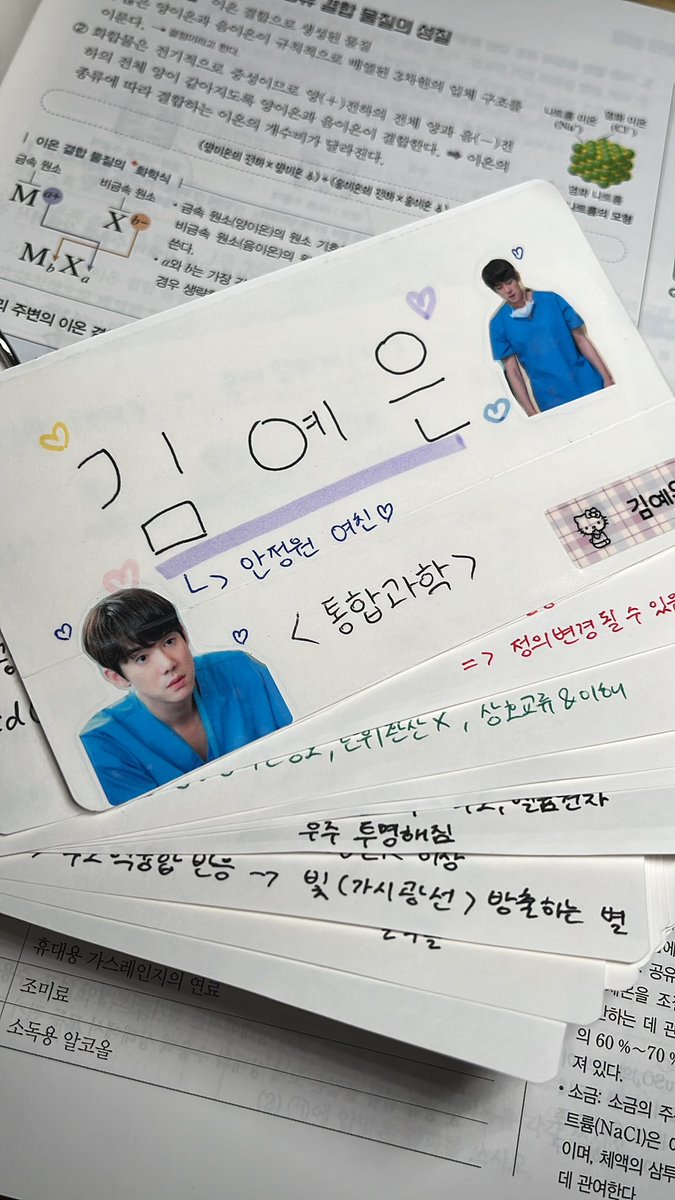 결합 물질의 성질
이온 결합으로 생성된 물질
양이온과 음이온이 규칙적으로 배열된 3차원의 입체 구조를
이룬다.
② 화합물은 전기적으로 중성이므로 양(+)전하의 전체 양과 음(-)전
하의 전체 양이 같아지도록 양이온과 음이온이 결합한다. ➡ 이온의
종류에 따라 결합하는 이온의 개수비가 달라진다.
(양이온의 전하×양이온 수)+(음이온의 전하×음이온 수)
나트륨 이온
(Na⁺)
염화 이온
(Cl⁻)
염화 나트륨
이온 결합 물질의 *화학식
금속 원소
비금속 원소
M a+
X b-
MbXa
• 금속 원소(양이온)의 원소
비금속 원소(음이온)의
쓴다.
• a와 b는 가장
경우
주변의 이온
김예은
ㄴ> 안정원 여친♡
<통합과학>
김예
=> 정의변경될 수 있음
, 상호교류&이해
우주 투명해짐
이상
반응 → 빛(가시광선) 방출하는 별
휴대용 가스레인지의 연료
조미료
소독용 알코올
공유
하는 데 관
의 60 %~70 %
져 있다.
• 소금: 소금의 주
트륨(NaCl)은
이며, 체액의 삼투
데 관여한다.